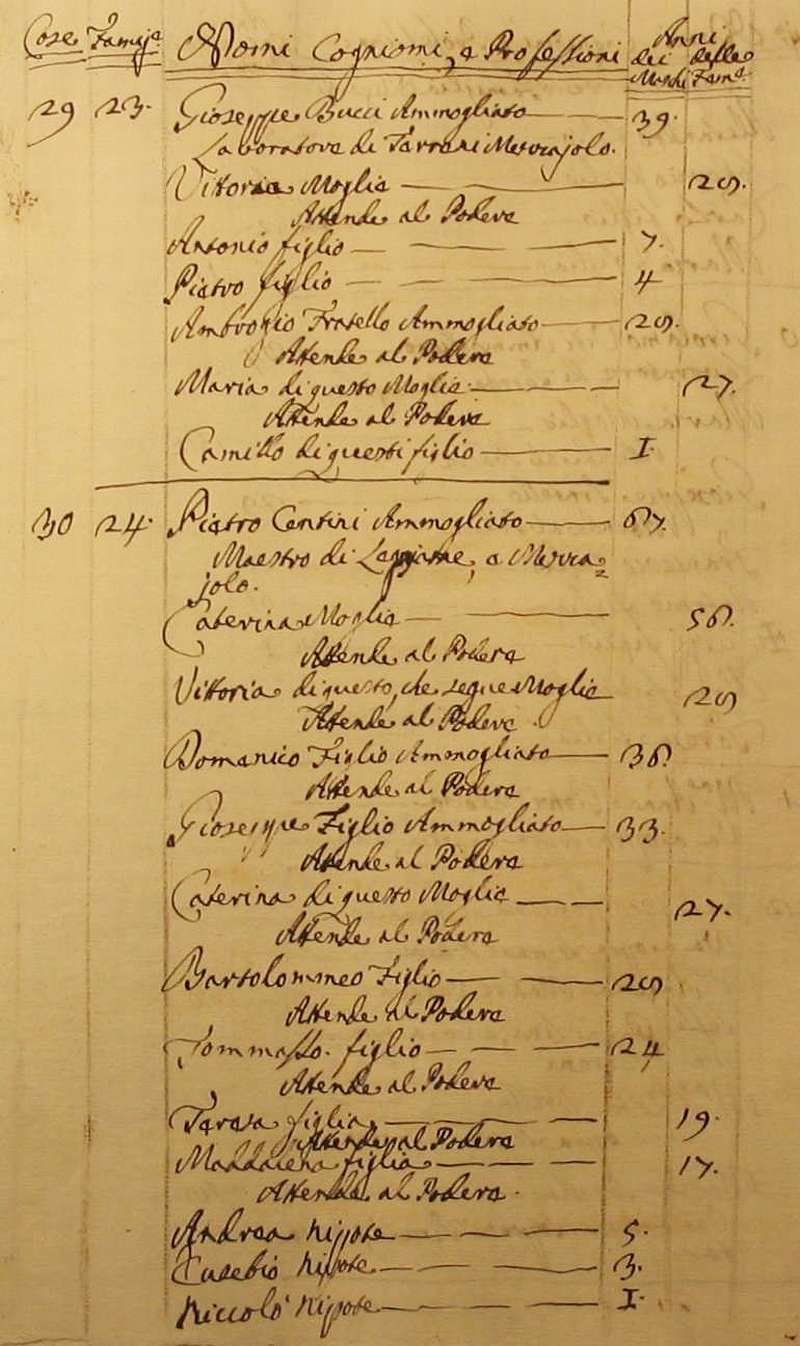 Case Famig.e Nomi Cogniomi, e Professioni Anni
dei delle
Maschi Fem.e
29 23. Gioseppe Bucci Ammogliato 39.
Lavoratore di Terreni Mezzajolo.
Vitoria Moglie 29.
Attende al Podere
Antonio figlio 7.
Pietro figlio 4
Ambrogio Fratello Ammogliato 29.
Attende al Podere
Maria di questo Moglie 27.
Attende al Podere
Camillo di questi figlio I
30 24. Pietro Centini Ammogliato 67.
Maestro di Legniame, e Mezza=
jolo.
Caterina Moglie 56.
Attende al Podere
Vittoria di questo, che segue Moglie 29
Attende al Podere
Domenico Figlio Ammogliato 36
Attende al Podere
Gioseppe Figlio Ammogliato 33.
Attende al Podere
Caterina di questo Moglie 27.
Attende al Podere
Bartolommeo Figlio 29
Attende al Podere
Tommasso figlio 24
Attende al Podere
Teresa figlia 19.
Attende al Podere
Maddalena figlia 17.
Attende al Podere.
Andrea Nipote 5.
Eusebio Nipote 3.
Niccolò Nipote I.